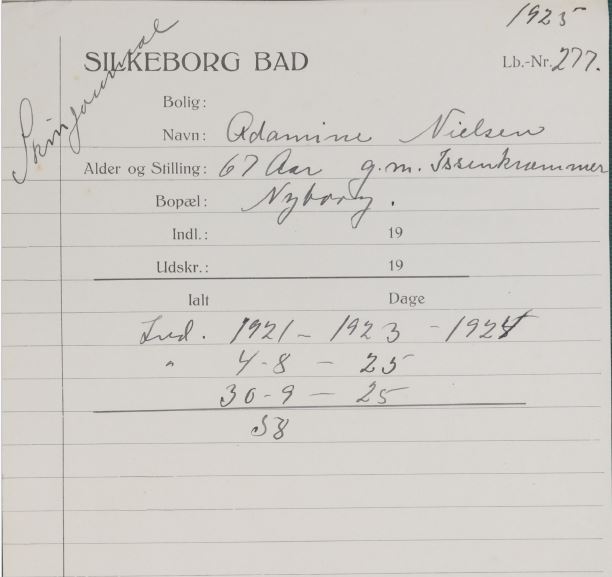 1925
Skinjournal
SILKEBORG BAD
Lb.-Nr. 277.
Bolig:
Navn: Adamine Nielsen
Alder og Stilling: 67 Aar g.m. Issenkræmmer
Bopæl: Nyborg.
Indl.: 19
Udskr.: 19
Ialt Dage
Ind. 1921 - 1923 - 1924
" 4-8 - 25
30-9 - 25
58